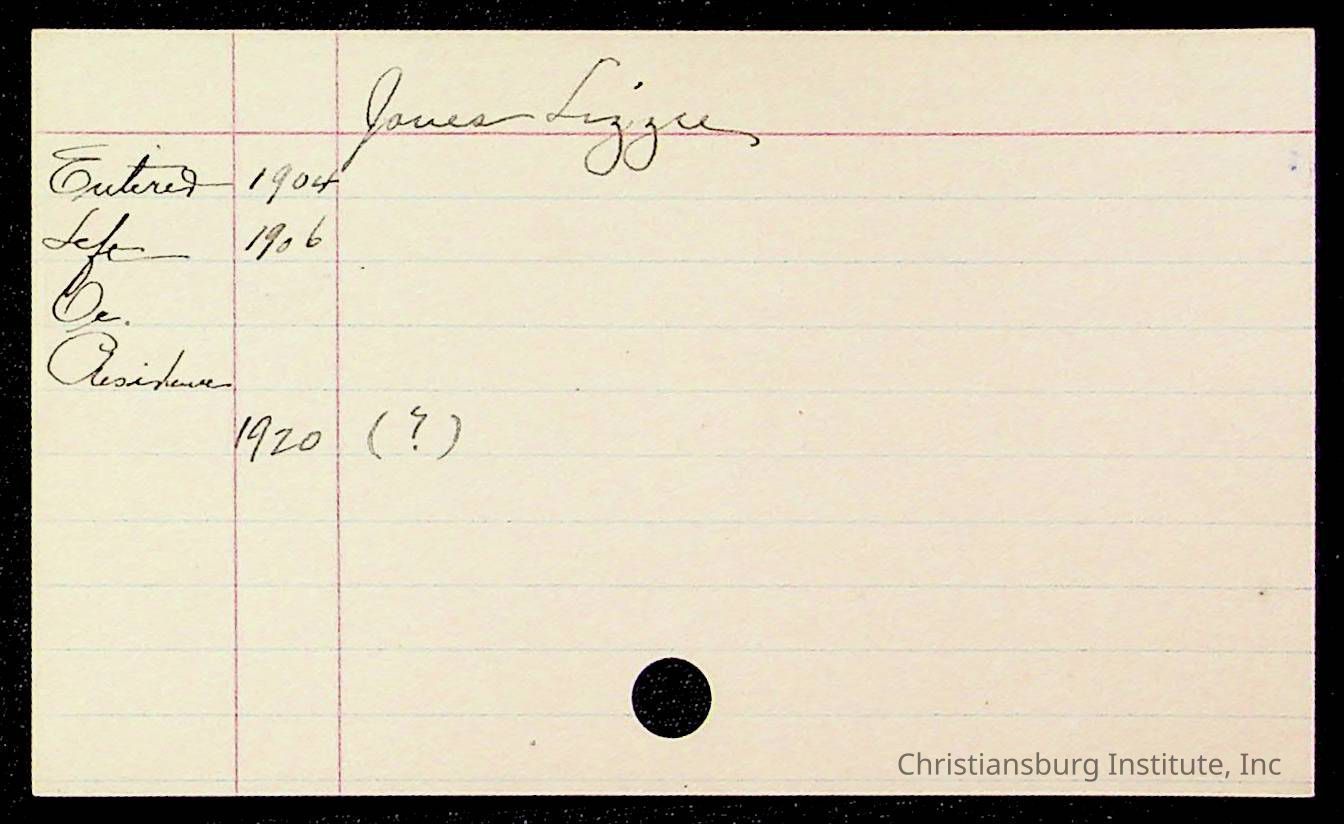 Jones Lizzie
Entered 1904
Left 1906
Oc.
Residence
1920 (?)
Christiansburg Institute, Inc